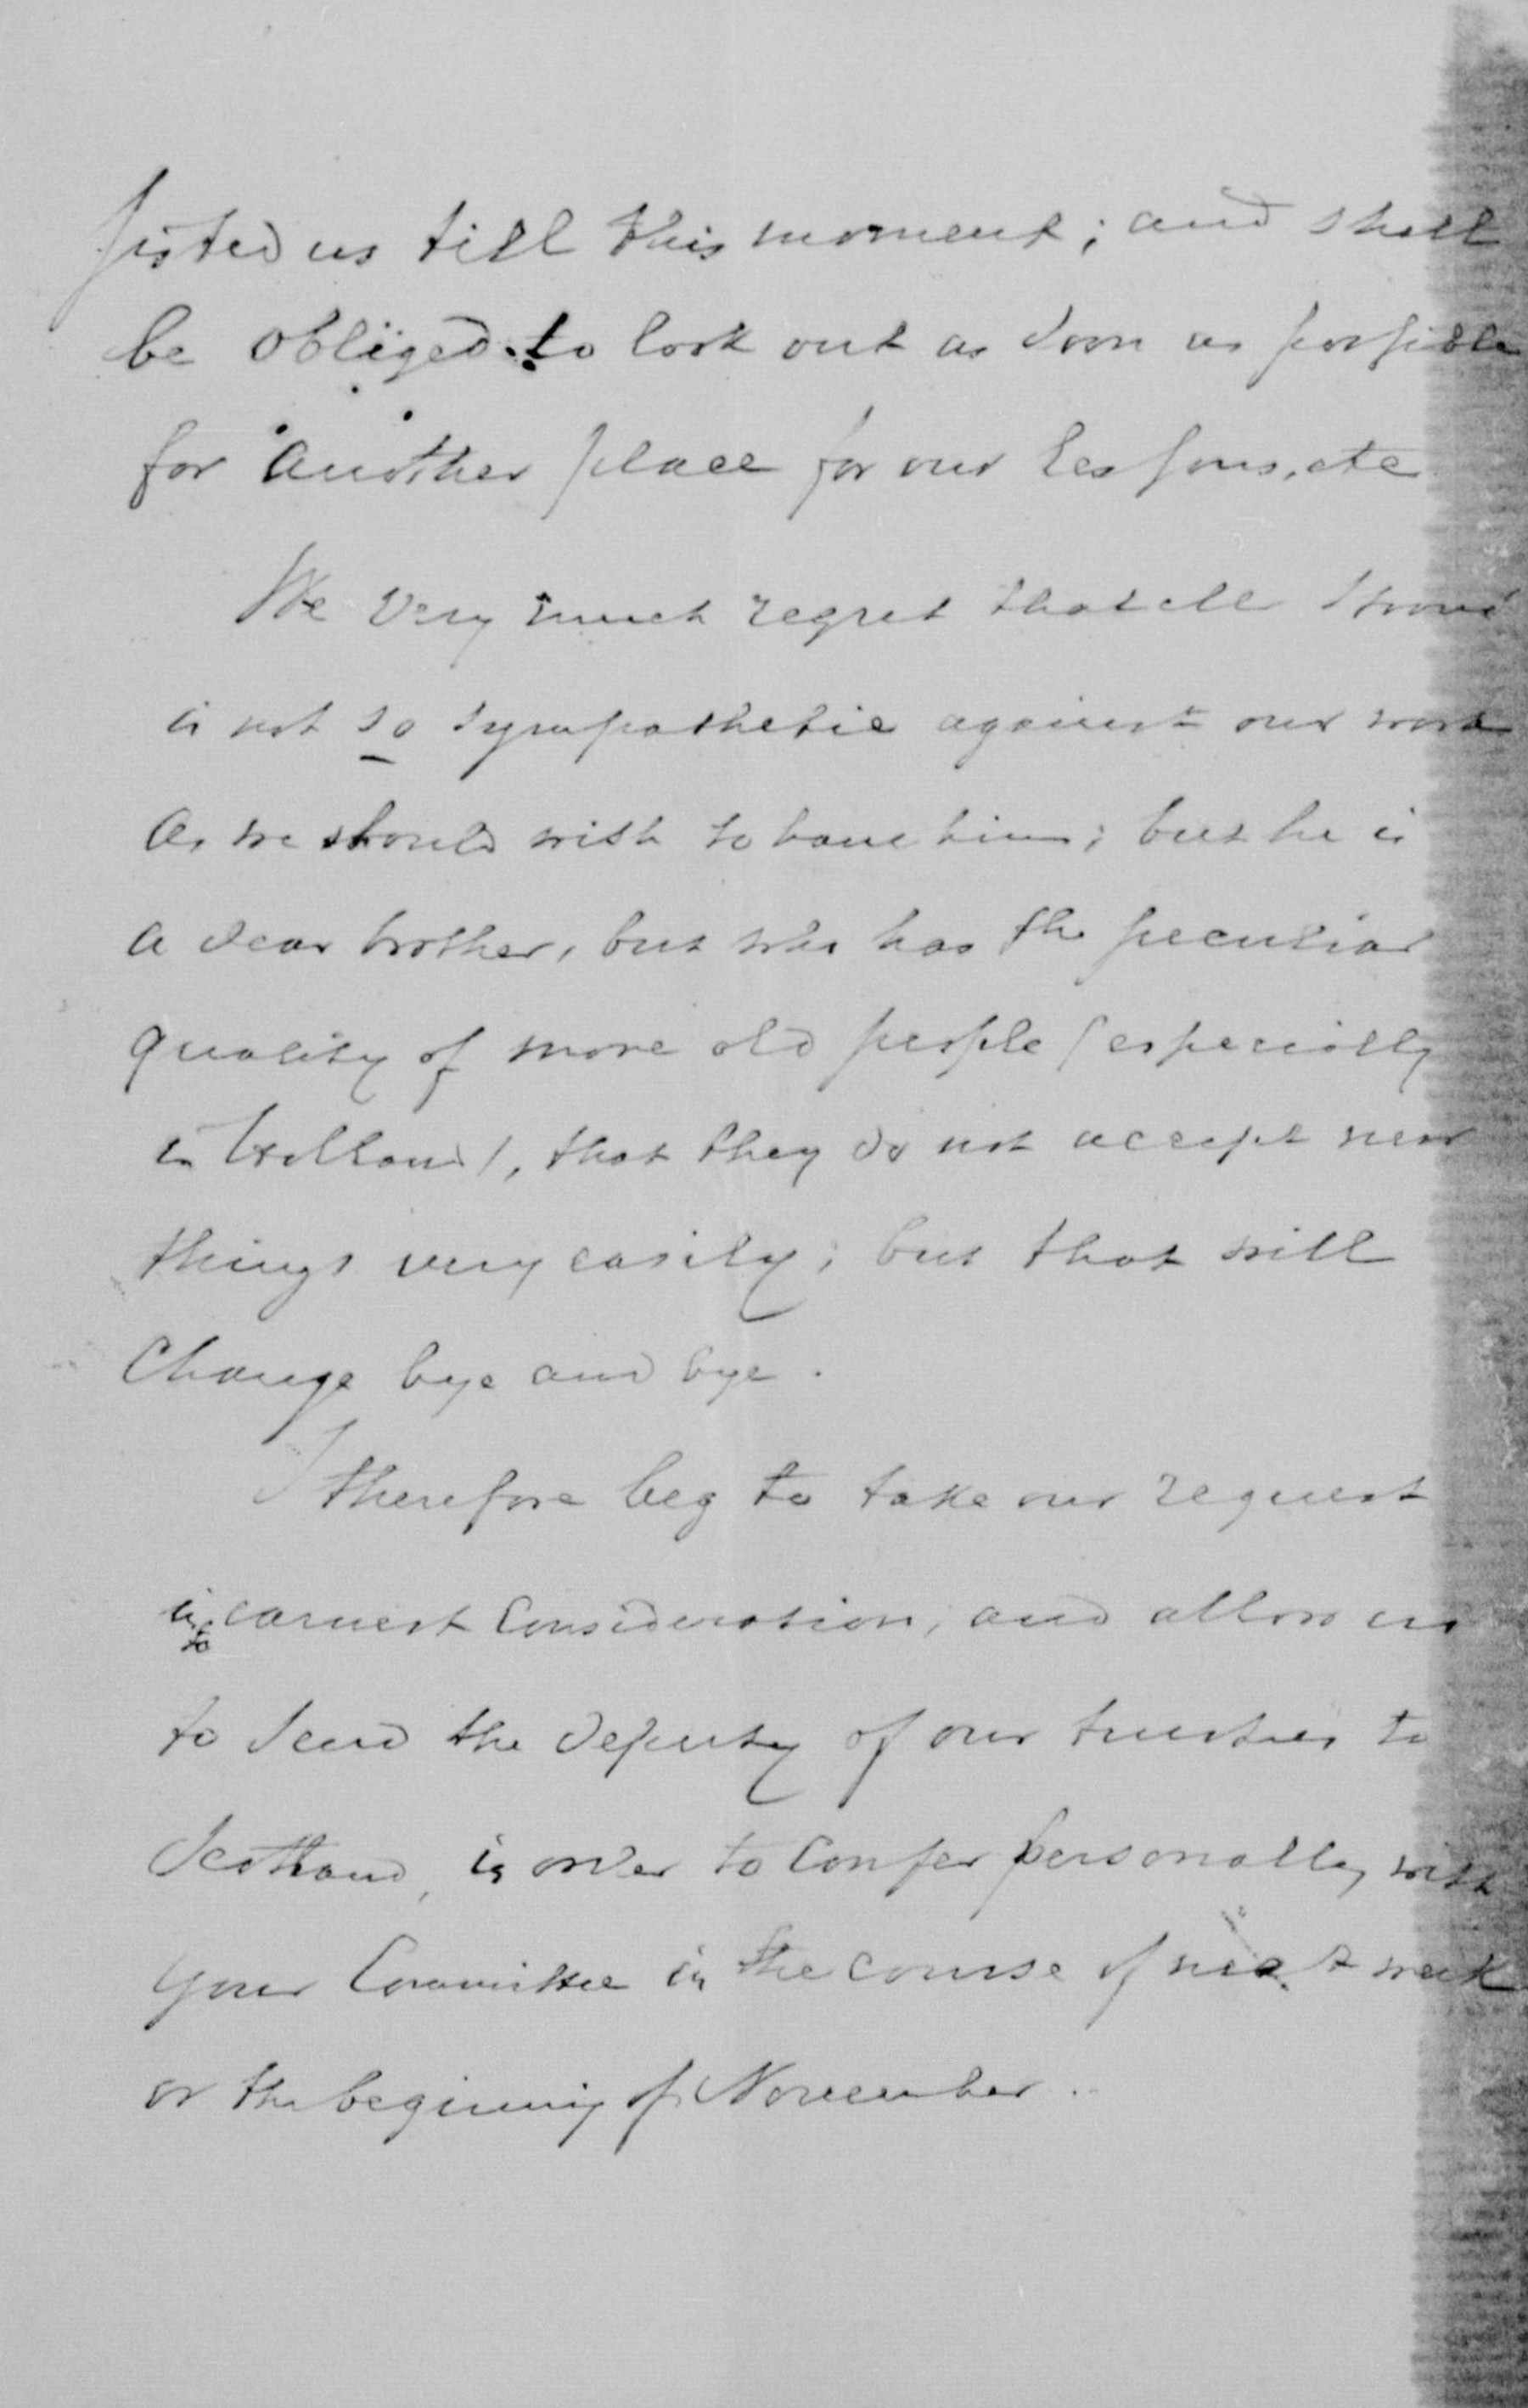 sisted us till this moment; and shall
be obliged to look out as soon as possible
for another place for our lessons, etc
We very much regret that
is not so sympathetic against our work
as we should wish to have him; but he is
a dear brother, but who has the peculiar
quality of more old people (especially
in Holland), that they do not accept new
things very easily; but that will
change bye and bye.
I therefore beg to take our request
into earnest consideration, and allow us
to send the deputy of our trustees to
Scotland, in order to confer personally with
your Committee in the course of next week
or the beginning of November.